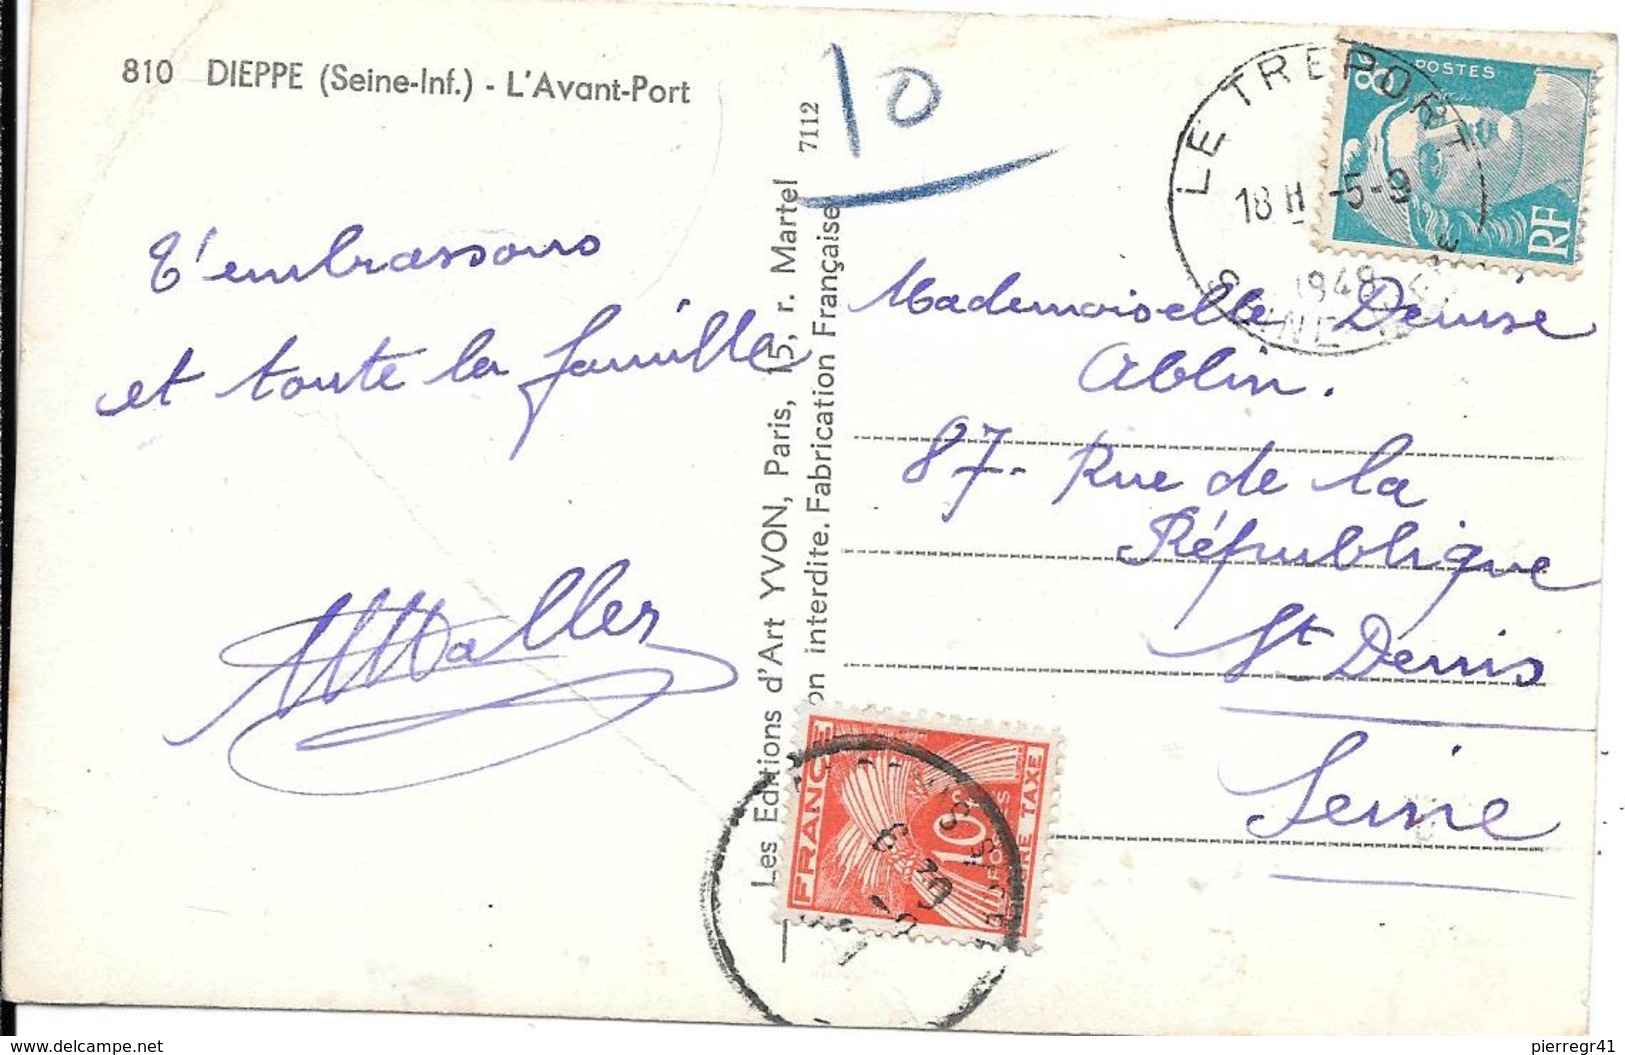 810 DIEPPE (Seine-Inf.) - L'Avant-Port
T'embrassons
et toute la famille
Les Editions d'Art YVON, Paris, 15, r. Martel 7112
on interdite. Fabrication Française
10
LE TREPORT
18 H -5-9
1948
POSTES
8
RF
Mademoiselle Denise
Ablin.
87- Rue de la
République
St Denis
Seine
FRANCE
10
TAXE
www.delcampe.net
pierregr41